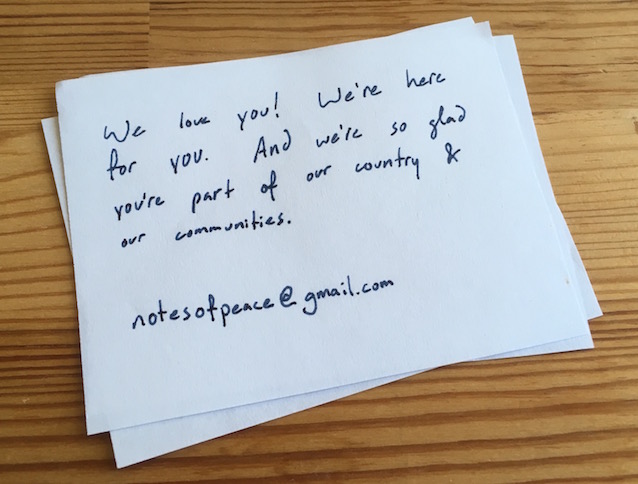 We love you! We're here
for you. And we're so glad
you're part of our country &
our communities.
notesofpeace@gmail.com